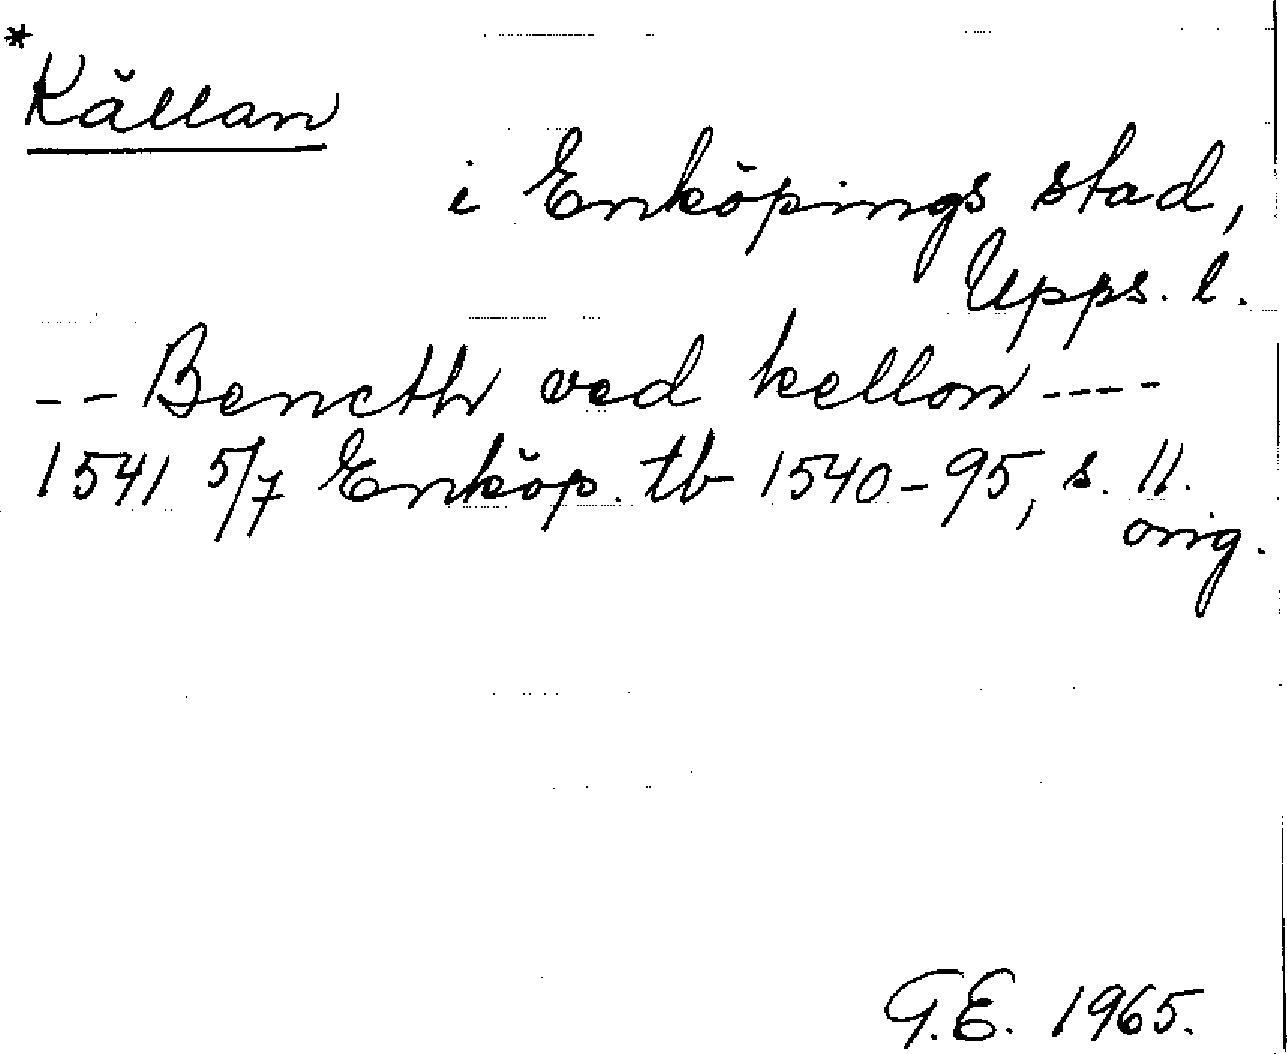 *
Källan
i Enköpings stad,
Upps. l.
-- Bencth ved kellon ----
1541 5/7 Enköp. tb 1540-95, s. 11.
orig.
G.E. 1965.